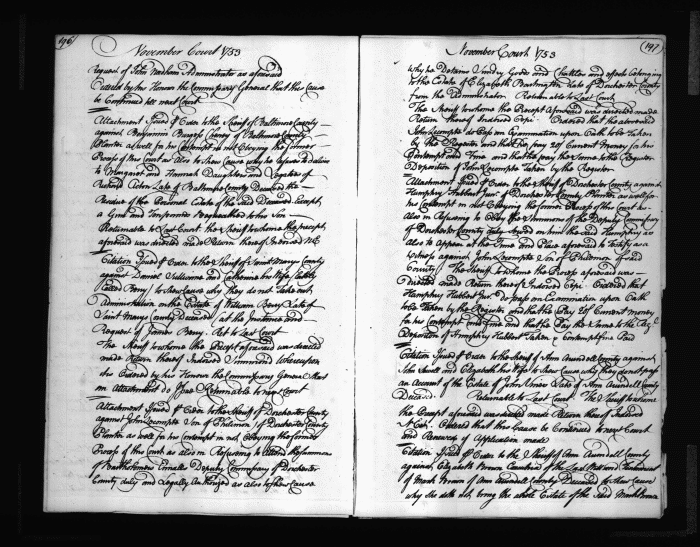 196
November Court 1753
Request of John Administrator as aforesaid
Ordered by his Honour the Commissary General that this Cause
be Continued till next Court
Attachment Issued & Given to the Sheriff of Baltimore County
against Benjamin Burgess Chaney of Baltimore County
Planter as well for his Contempt in not obeying the former
Process of this Court as Also to shew Cause why he refuses to deliver
to Margaret and Hannah Daughters and Legatees of
Richard Late of Baltimore County Deceased the
Residue of the Personal Estate of the said Deceased Except
a Gun and Bequeathed to the Son
Returnable to Last Court the Sheriff to whom the precept
aforesaid was directed made Return thereof Indorsed NE
Citation Issued & Given to the Sheriff of Saint Marys County
against Daniel Sullivane and Catherine his Wife lately
Called Berry to shew Cause why they do not take out
Administration on the Estate of William Berry Late of
Saint Marys County Deceased at the Instance and
Request of James Berry Ret to Last Court
The Sheriff to whom the Precept aforesaid was directed
made Return thereof Indorsed Summoned Whereupon
its Ordered by his Honour the Commissary General that
an Attachment do Issue Returnable to next Court
Attachment Issued & Given to the Sheriff of Dorchester County
against John Lecompte Son of Philemon of Dorchester County
Planter as well for his Contempt in not obeying the former
Process of this Court as also in Refusing to the Summons
of Bartholomew Ennalls Deputy Commissary of Dorchester
County duly and Legally Authorized as also to shew Cause
197
November Court 1753
Why he Detains Sundry Goods and Chattles and effects belonging
to the Estate of Elizabeth Late of Dorchester County
from the Administrator Returnable to Last Court
The Sheriff to whom the Precept Aforesaid was directed made
Return thereof Indorsed Cepi Ordered that the aforesaid
John Lecompte do Pass on Examination upon Oath to be Taken
by the Register and that he pay 20/ Current Money for his
Contempt and Fine and that he pay the Same to the Register
Deposition of John Lecompte Taken by the Register
Attachment Issued & Given to the Sheriff of Dorchester County against
Humphry Hubbert Junr of Dorchester County Planter as well for
his Contempt in not Obeying the former Process of this Court as
Also in Refusing to Obey the Summons of the Deputy Commissary
of Dorchester County duly Served on him the said Humphry as
also to Appear at the Time and Place aforesaid to Testify as a
Witness against John Lecompte Son of Philemon of said
County The Sheriff to whom the Precept aforesaid was
directed made Return thereof Indorsed Cepi Ordered that
Humphry Hubbert Junr do pass on Examination upon Oath
to be Taken by the Register and that he Pay 20/ Current money
for his Contempt and Fine and that he Pay the Same to the
Deposition of Humphry Hubbert Taken & Contempt fine Paid
Citation Issued & Given to the Sheriff of Ann Arundell County against
John and Elizabeth his Wife to shew Cause why they do not pass
an Account of the Estate of John Late of Ann Arundell County
Deceased Returnable to Last Court The Sheriff to whom
the Precept aforesaid was directed made Return thereof Indorsed
Ordered that this Cause be Continued to next Court
and Renewal of Application made
Citation Issued & Given to the Sheriff of Ann Arundell County
against Elizabeth Brown Executrix of the Last Will and Testament
of Mark Brown of Ann Arundell County Deceased to shew Cause
why she doth not bring the whole Estate of the said Mark Brown